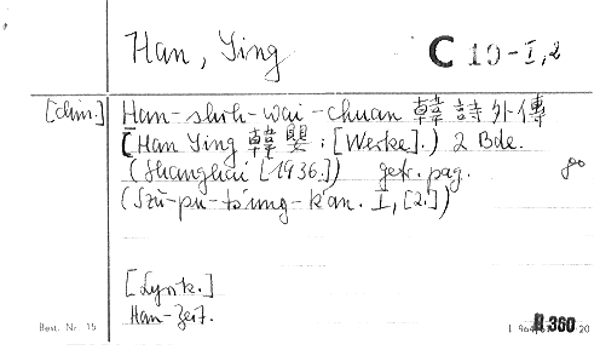 Han, Ying
C 10-I,2
[chin.] Han-shih-wai-chuan 韓詩外傳
[Han Ying 韓嬰: [Werke].) 2 Bde.
(Shanghai [1936.]) getr. pag. 8°
(Szŭ-pu-ts'ung-k'an. I,[2.])
[Lyrik.]
Han-Zeit.
Best. Nr. 15
R 360
20